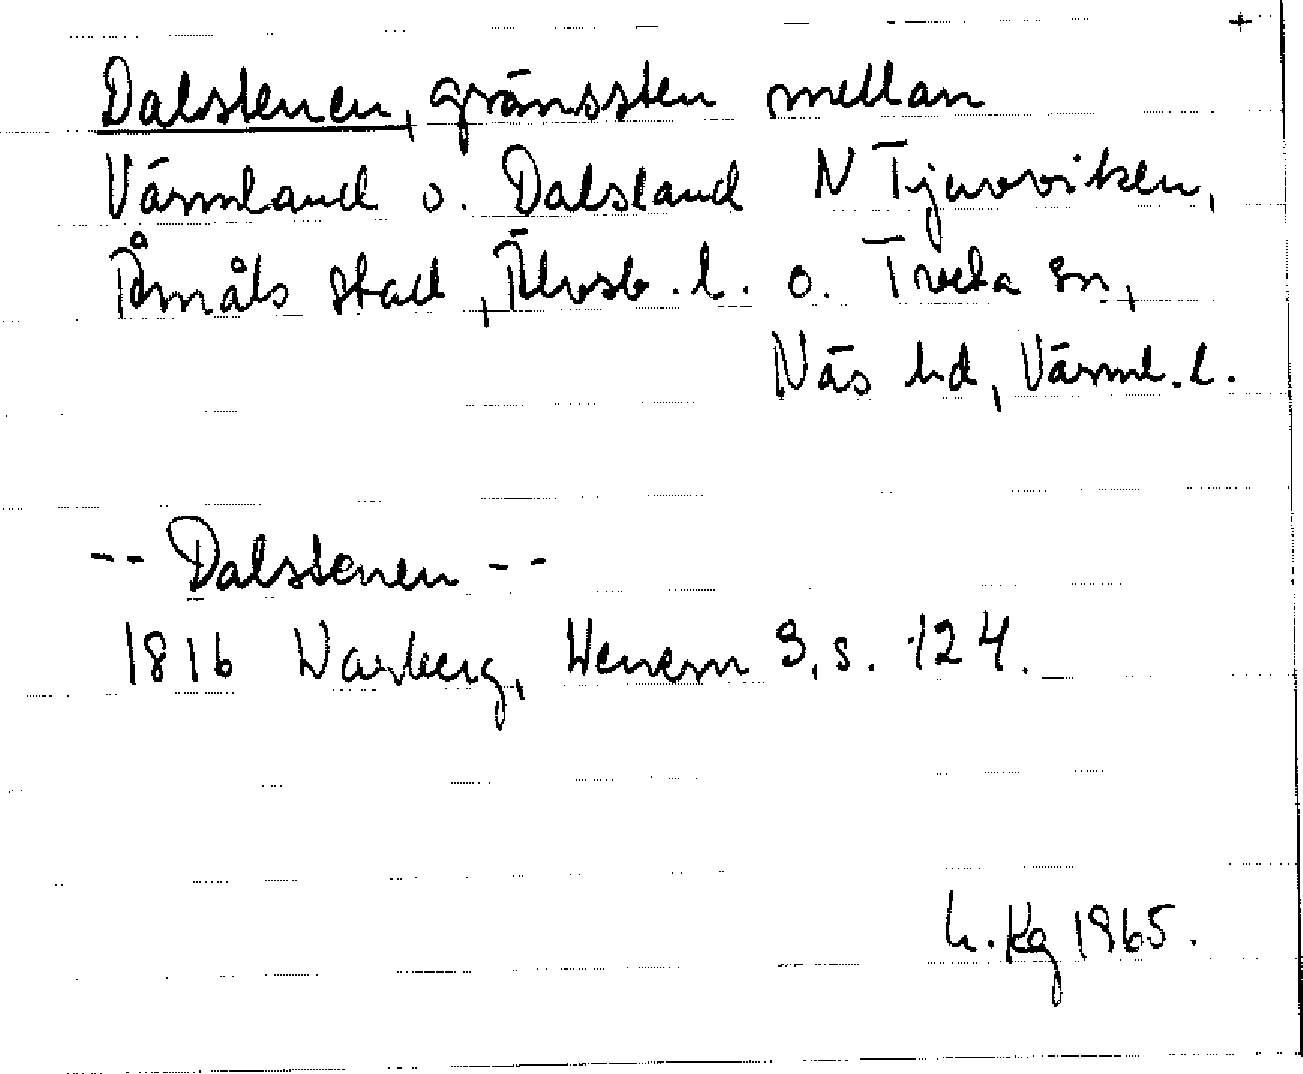 +
Dalstenen, gränssten mellan
Värmland o. Dalsland N Tjuvviken,
Åmåls stad, Älvsb. l. o. Tveta sn,
Näs hd, Värml. l.
-- Dalstenen --
1816 Warberg, Wenern S, s. 124.
h. Kg 1965.